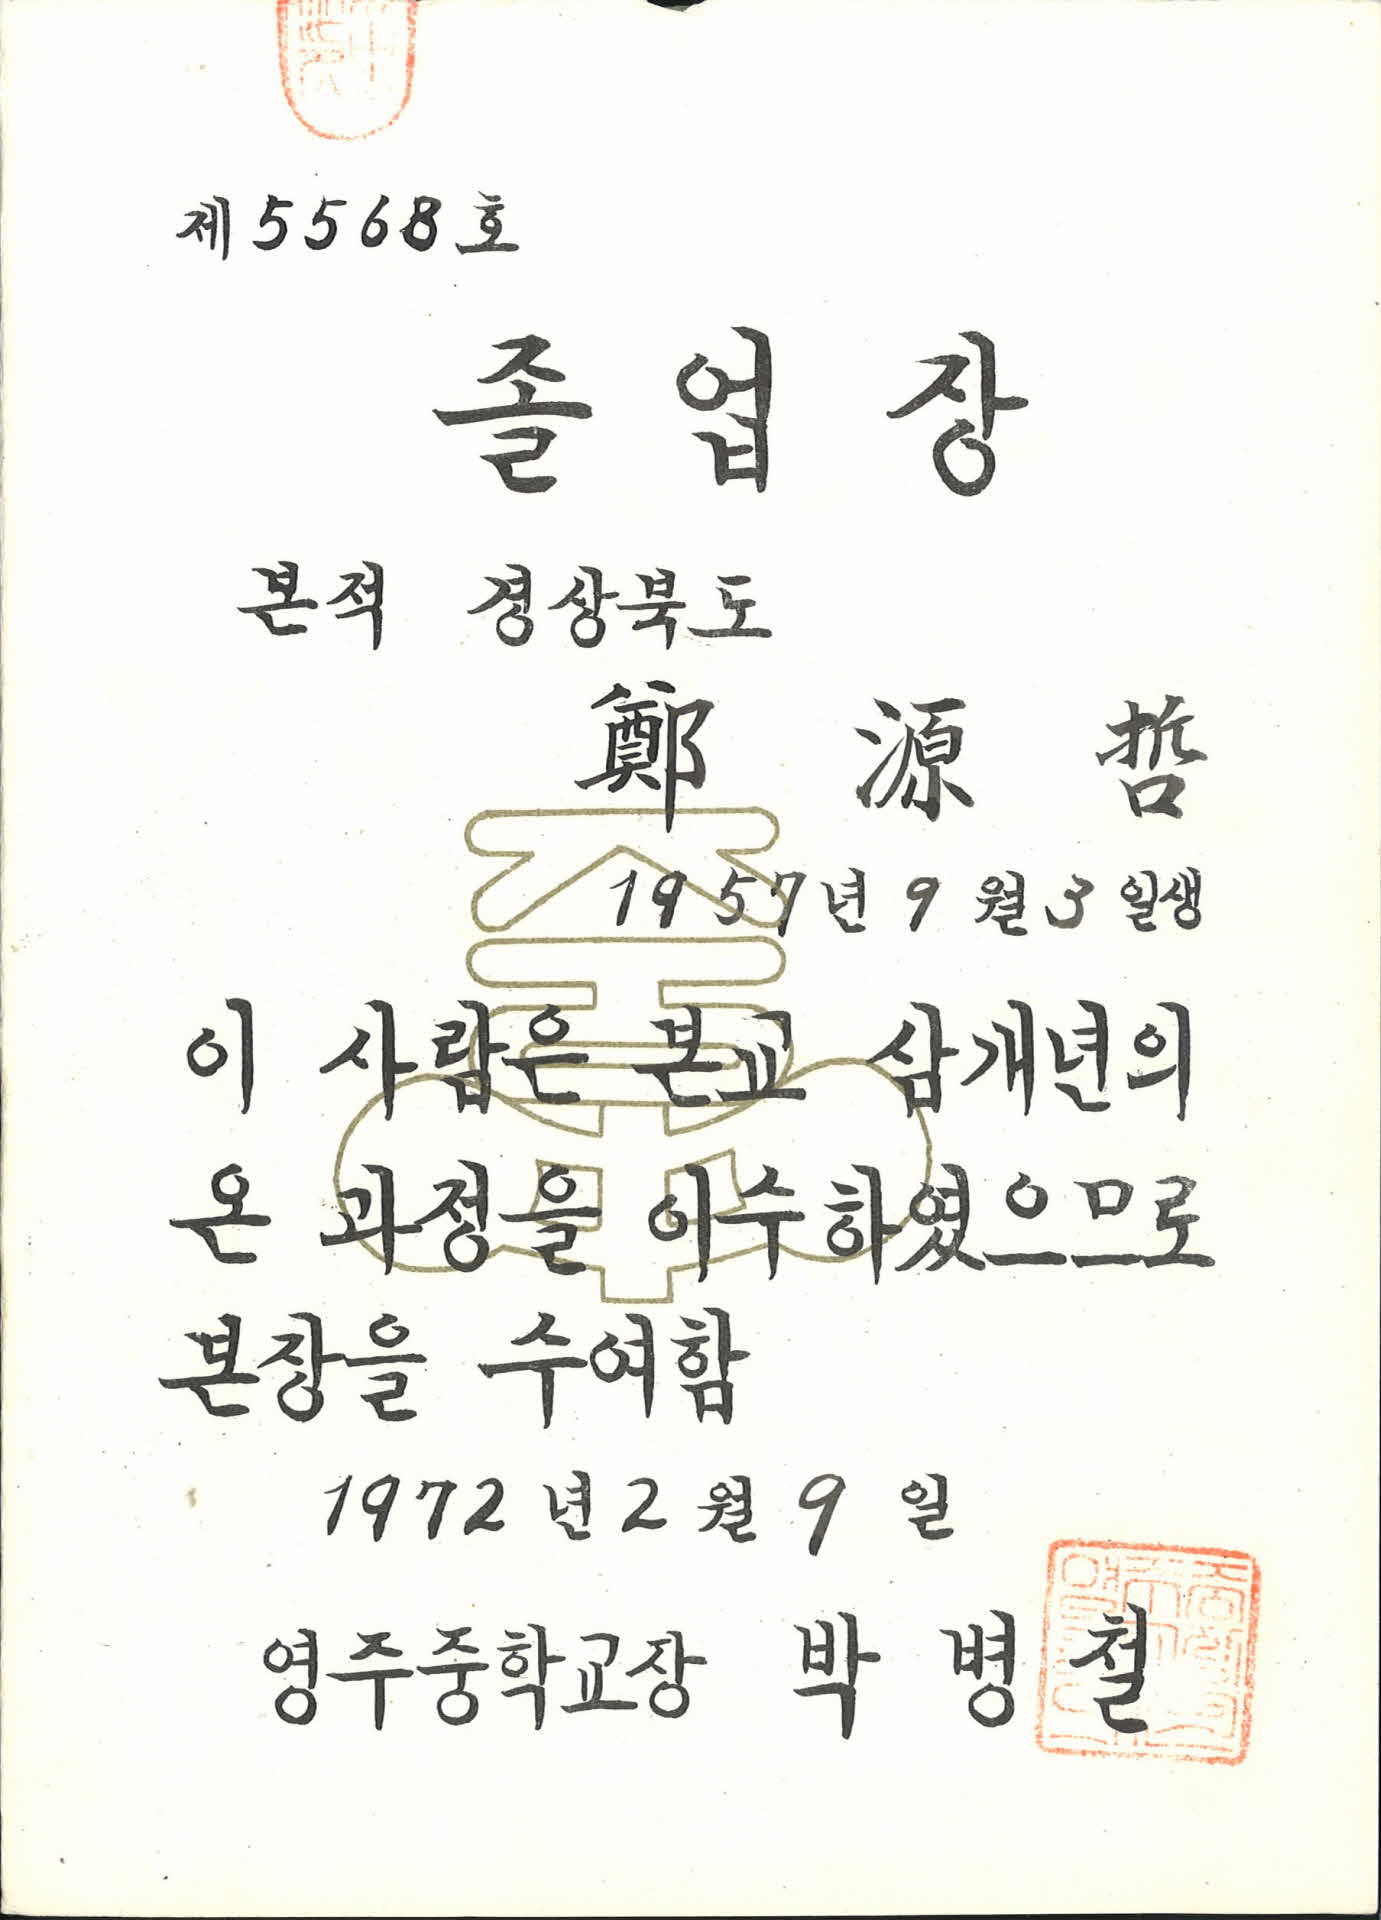 제5568호
졸업장
본적 경상북도
鄭源哲
1957년 9월 3일생
이 사람은 본교 삼개년의
온 과정을 이수하였으므로
본장을 수여함
1972년 2월 9일
영주중학교장 박병철